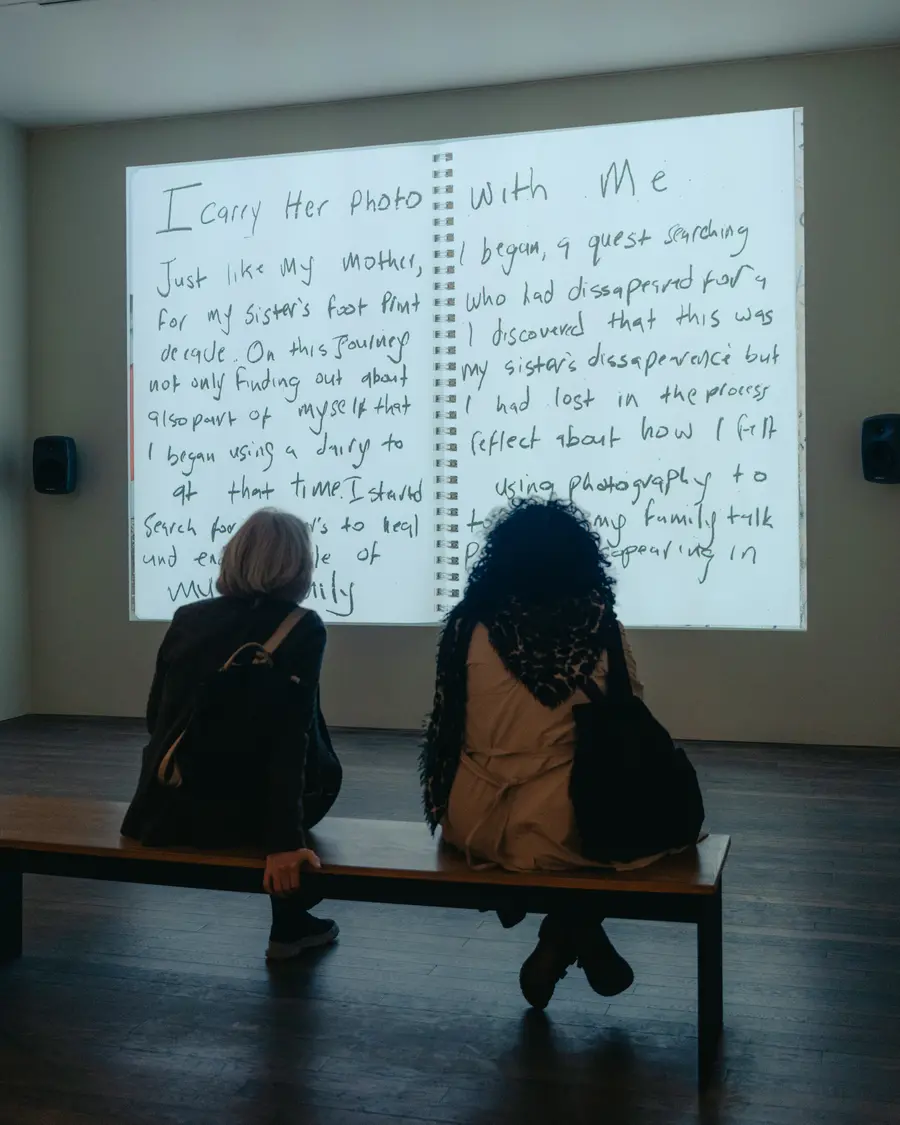 I Carry Her Photo With Me
Just like My Mother, I began, a quest searching
for my sister's foot Print who had dissapeared for a
decade. On this Journey I discovered that this was
not only finding out about my sister's dissaperence but
also part of myself that I had lost in the process
I began using a dairy to reflect about how I felt
at that time. I started using photography to
Search for to heal to my family talk
und of in
My